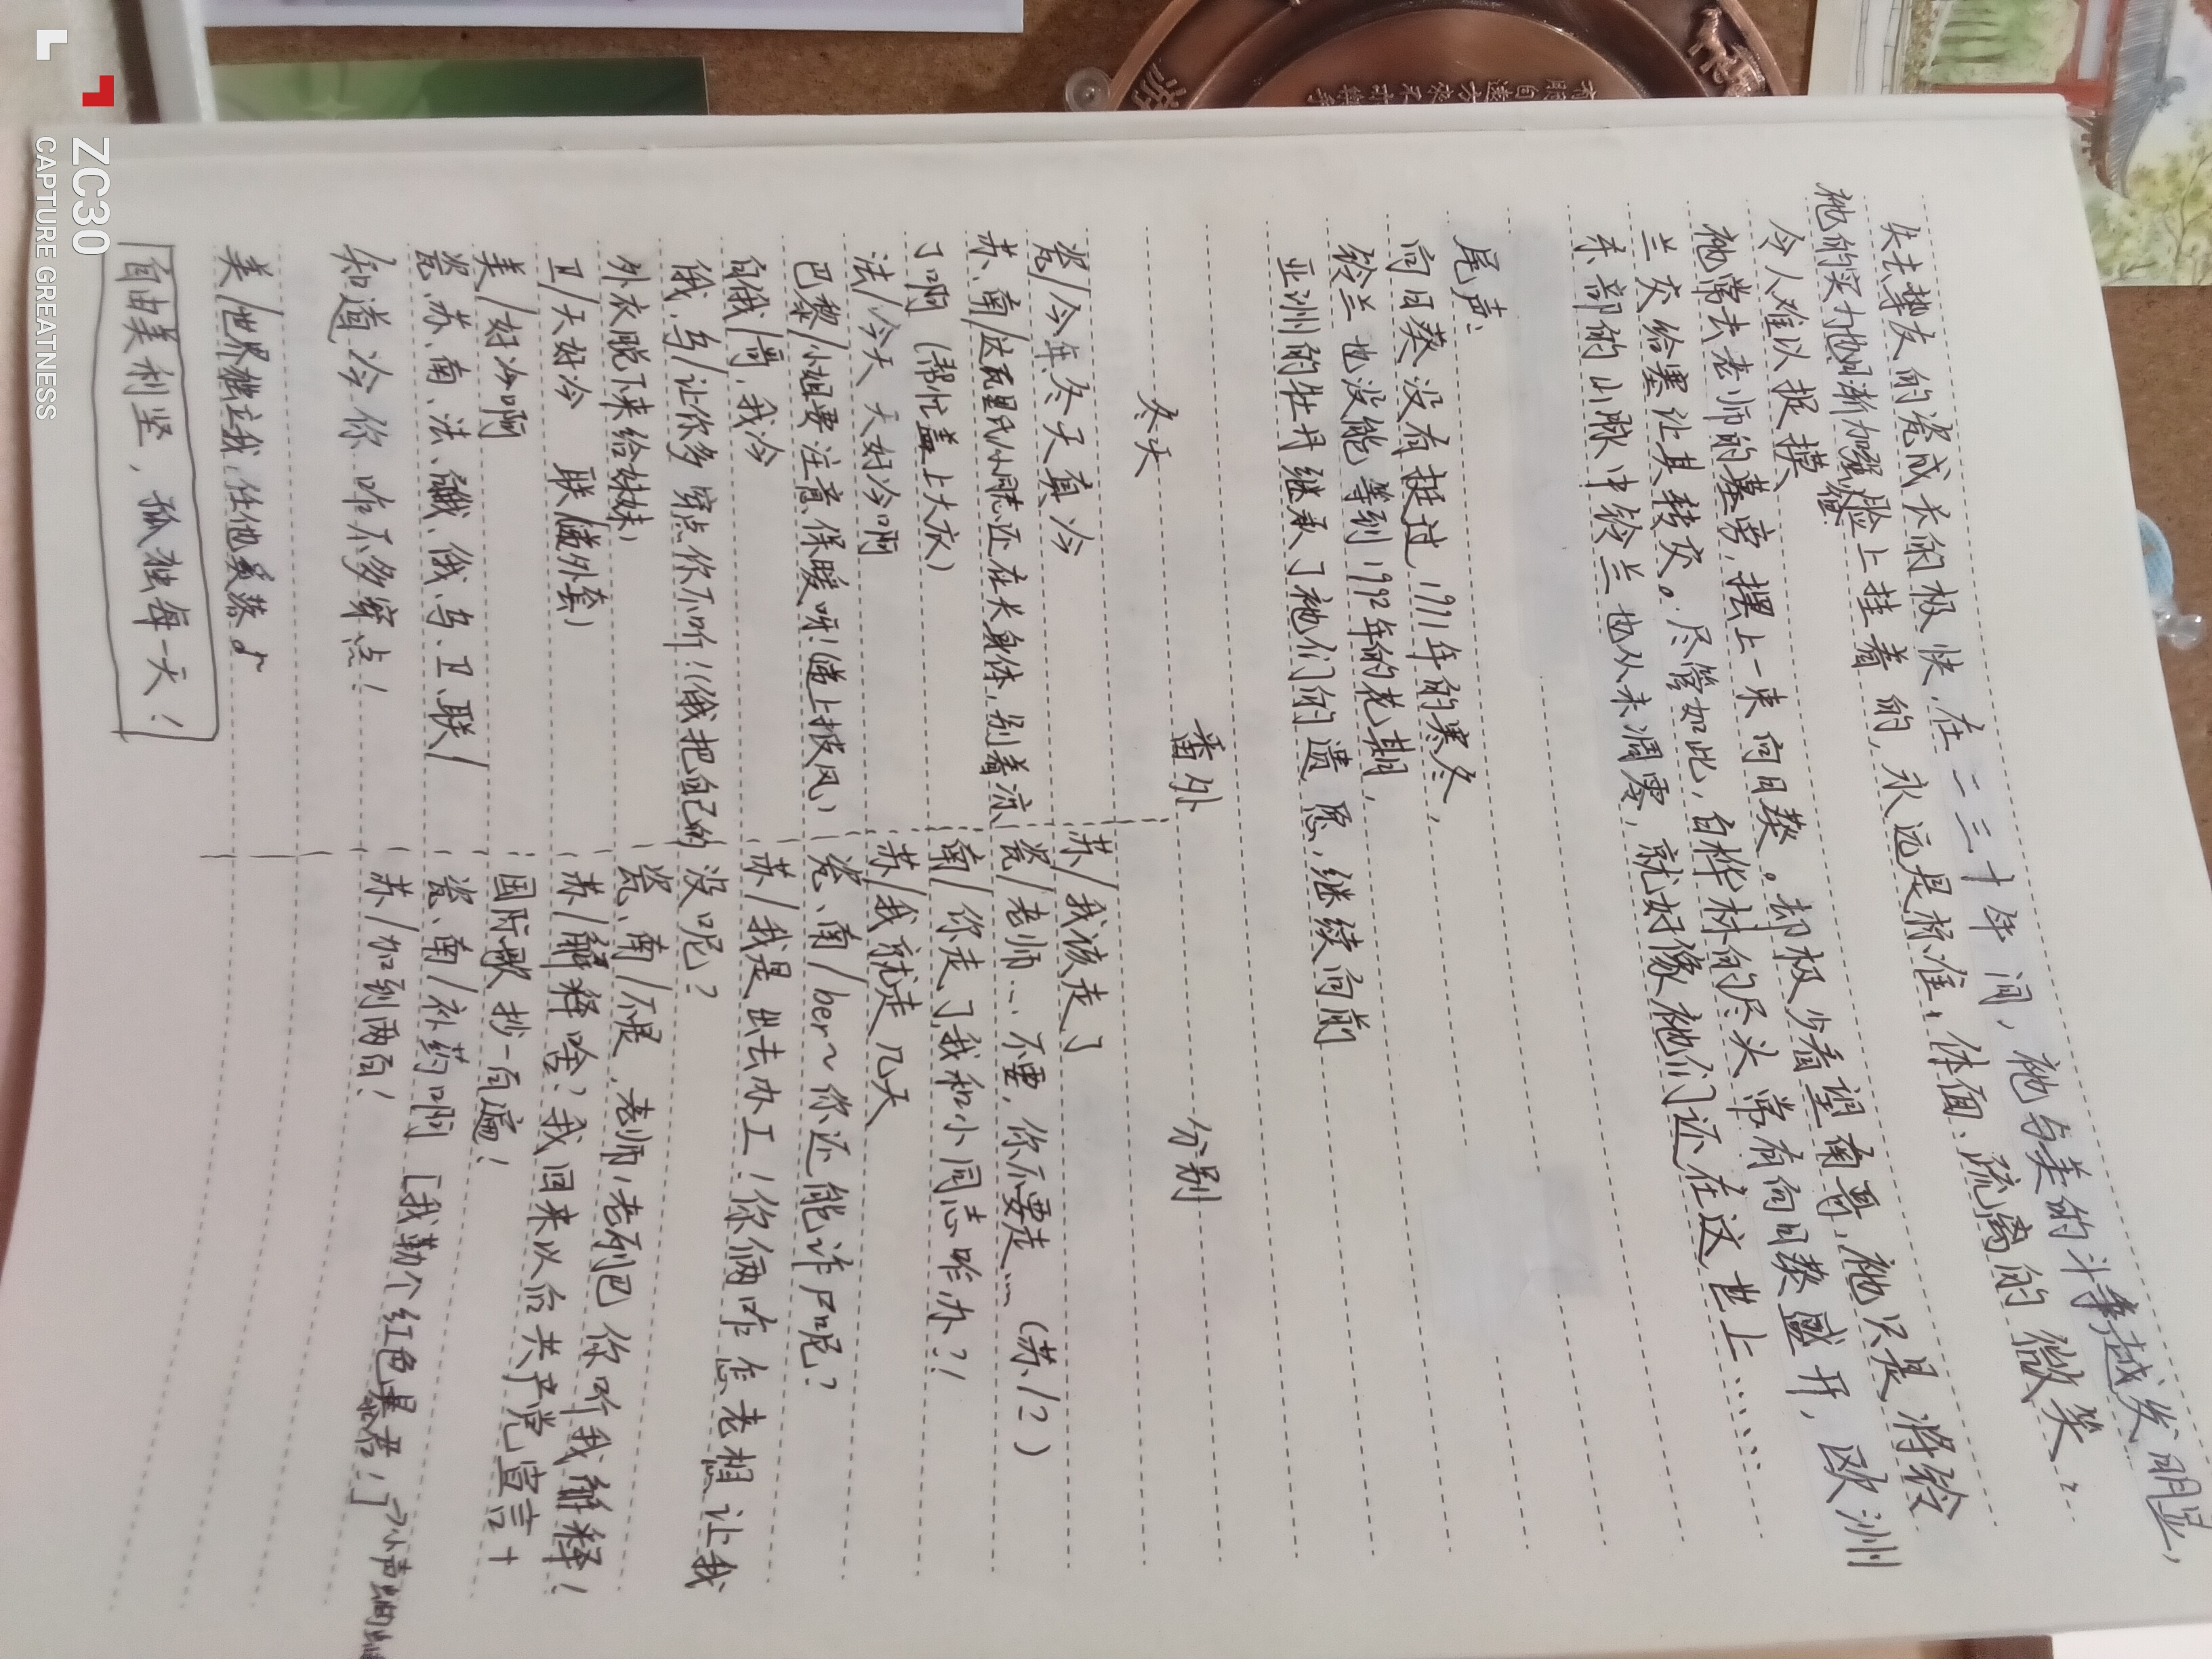 失去挚友的瓷成长的极快,在二三十年间,祂与美的斗争越发明显,
祂的实力也日渐加强,脸上挂着的,永远是标准,体面、疏离的微笑.
令人难以捉摸
祂常去老师的墓旁,摆上一束向日葵。却极少看望南哥,祂只是将铃
兰交给塞让其转交。尽管如此,白桦林的尽头常有向日葵盛开,欧洲
东部的山脉中铃兰也从未凋零,就好像祂们还在这世上……
尾声:
向日葵没有挺过1991年的寒冬,
铃兰也没能等到1992年的花期,
亚洲的牡丹继承了祂们的遗愿,继续向前
番外
冬天
瓷/今年冬天真冷
苏、南/达瓦里氏/小同志还在长身体,别着凉
了啊 (帮忙盖上大衣)
法/今天天好冷啊
巴黎/小姐要注意保暖呀!(递上披风)
白俄/哥,我冷
俄、乌/让你多穿点你不听!(俄把自己的
外衣脱下来给妹妹)
卫/天好冷 联/(递外套)
美/好冷啊
瓷、苏、南、法、俄、乌、卫、联/
知道冷你咋不多穿点!
美/世界独立我,任他美落♪
自由美利坚,孤独每一天!
分别
苏/我该走了
瓷/老师…不要,你不要走… (苏/?)
南/你走了,我和小同志咋办?!
苏/我就走几天
瓷、南/ber~你还能诈尸呢?
苏/我是出去办工!你俩咋怎老想让我
没呢?
瓷、南/不是,老师/老列巴你听我解释!
苏/解释啥?我回来以后共产党宣言+
国际歌抄一百遍!
瓷、南/补药啊 [我勒个红色暴君!]→小声
苏/加到两百!
ZC30
CAPTURE GREATNESS
有朋自远方来不亦乐乎